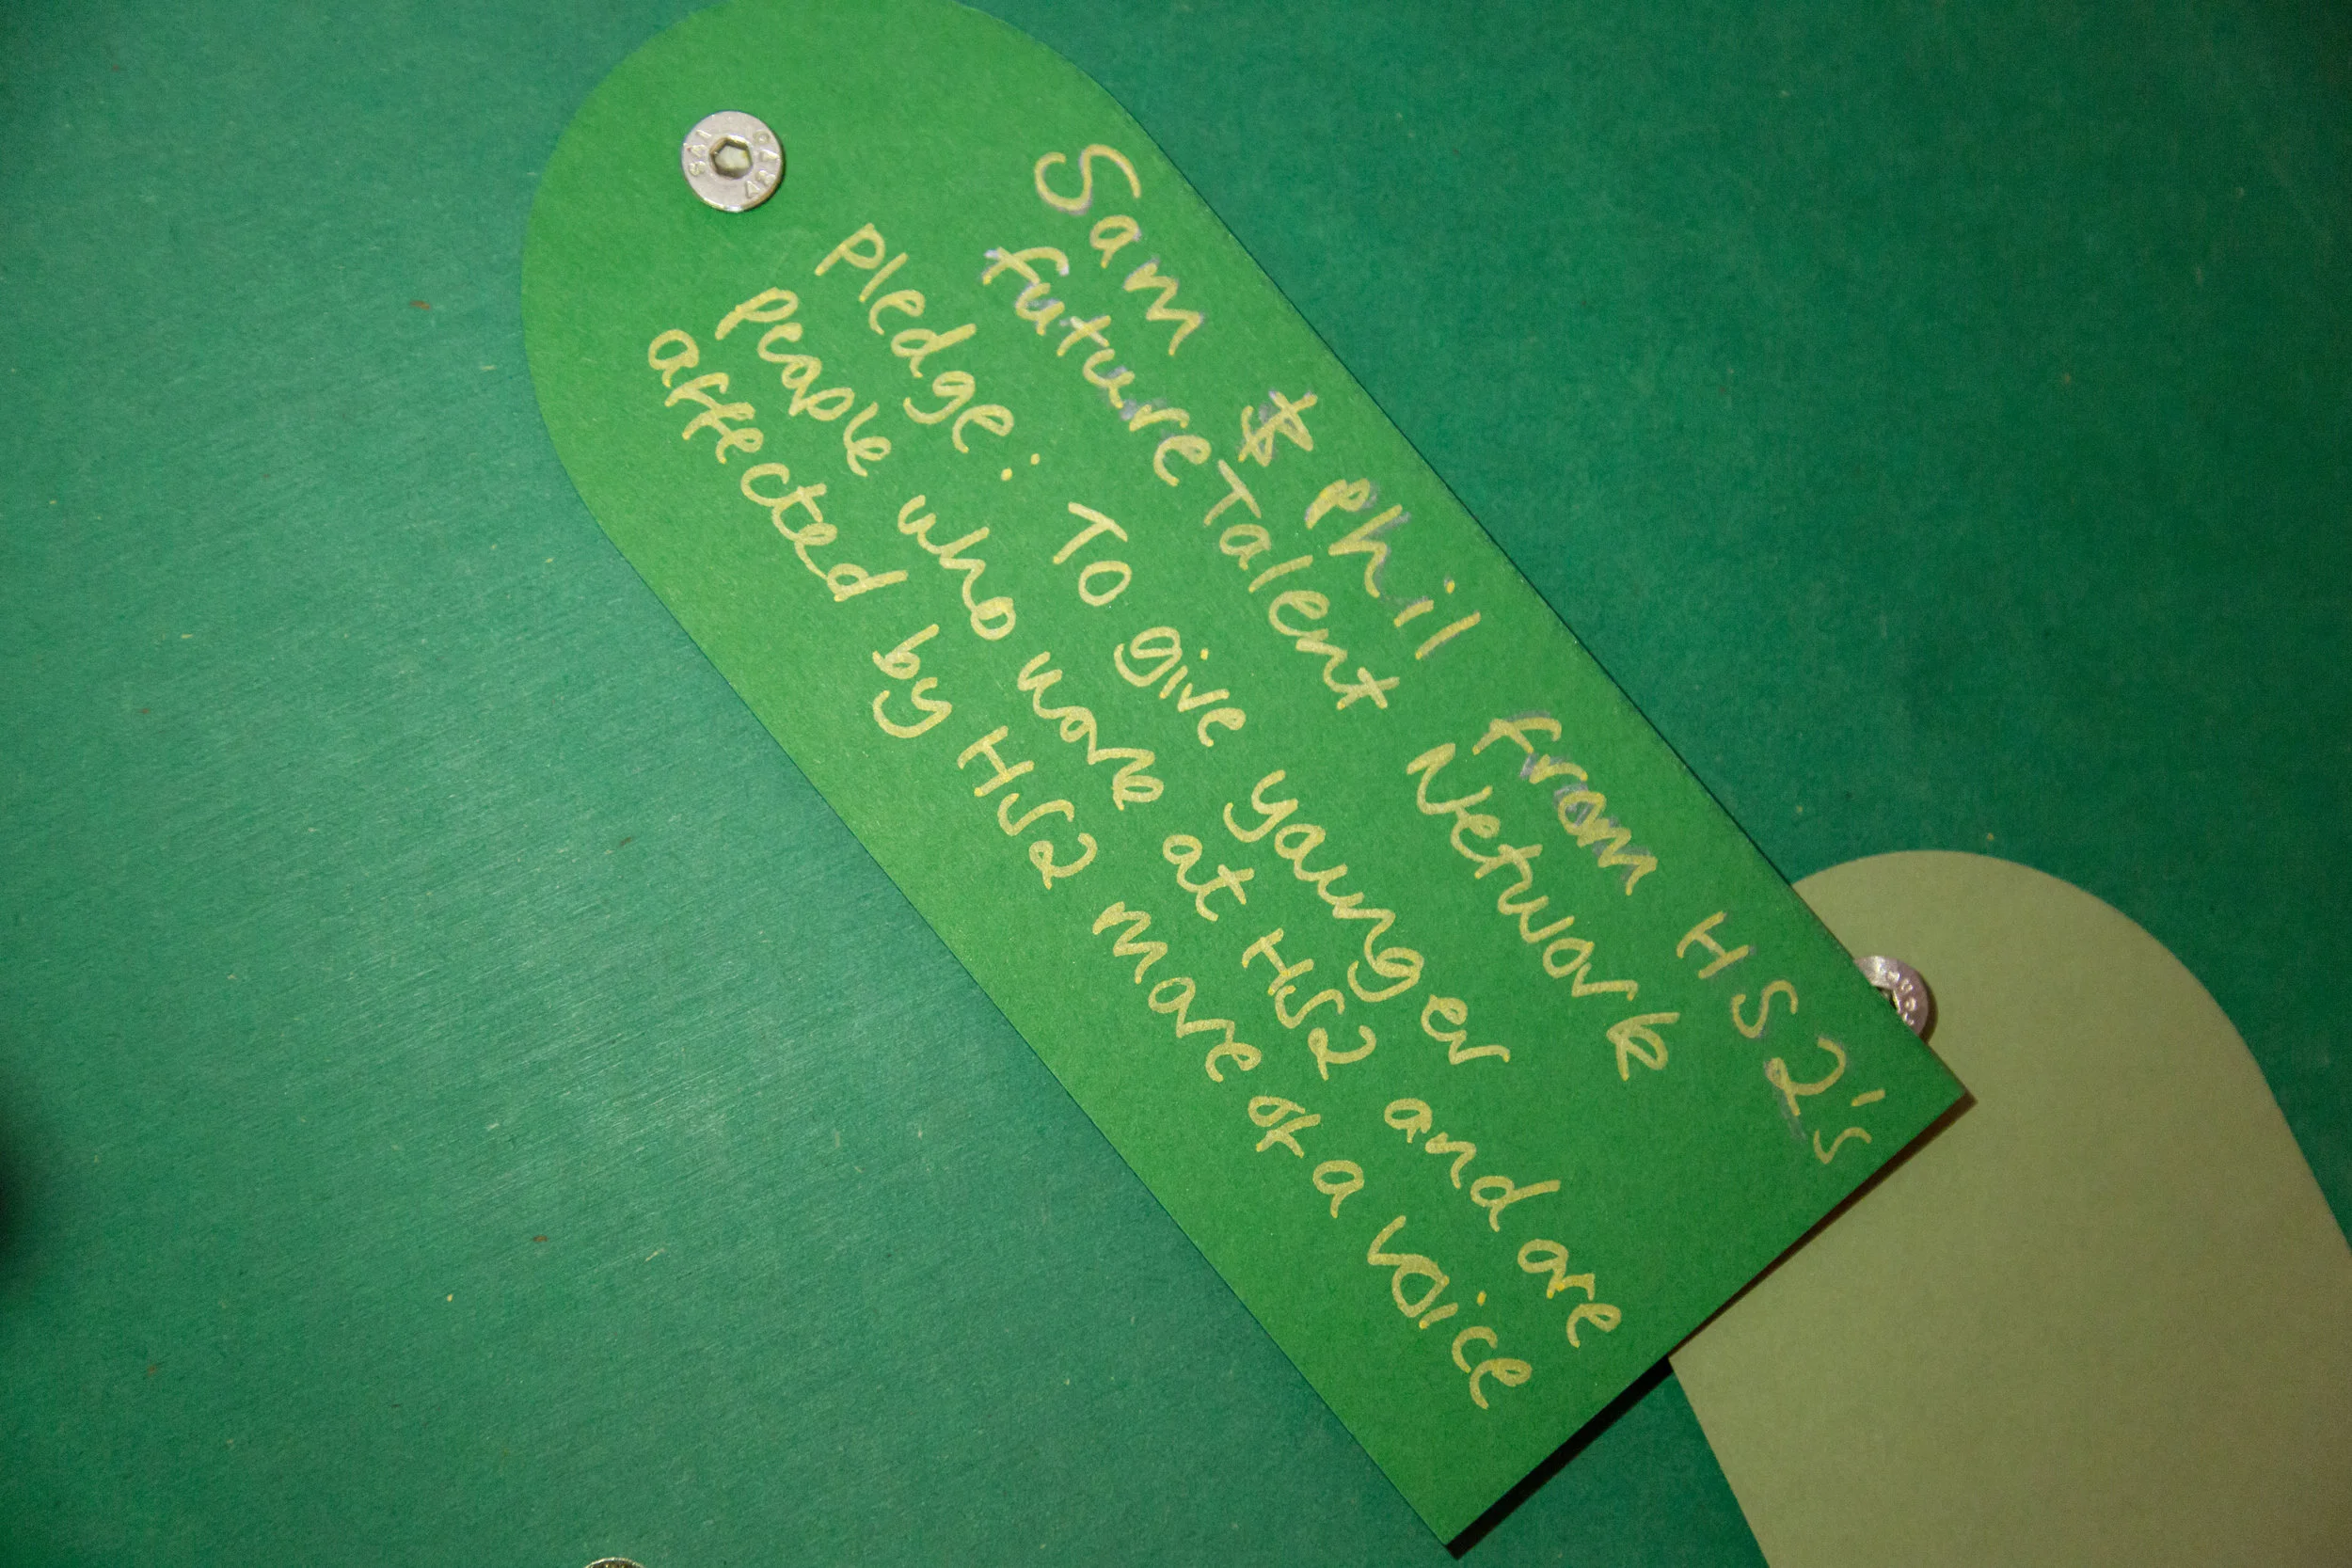 Sam & Phil from HS2's
future Talent Network
Pledge: To give younger
people who work at HS2 and are
affected by HS2 more of a voice